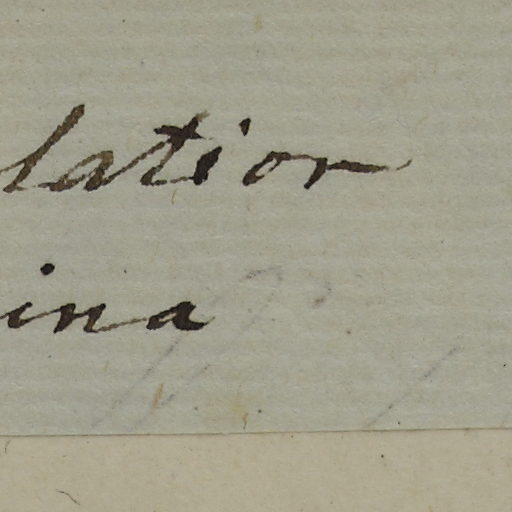 latior
ina